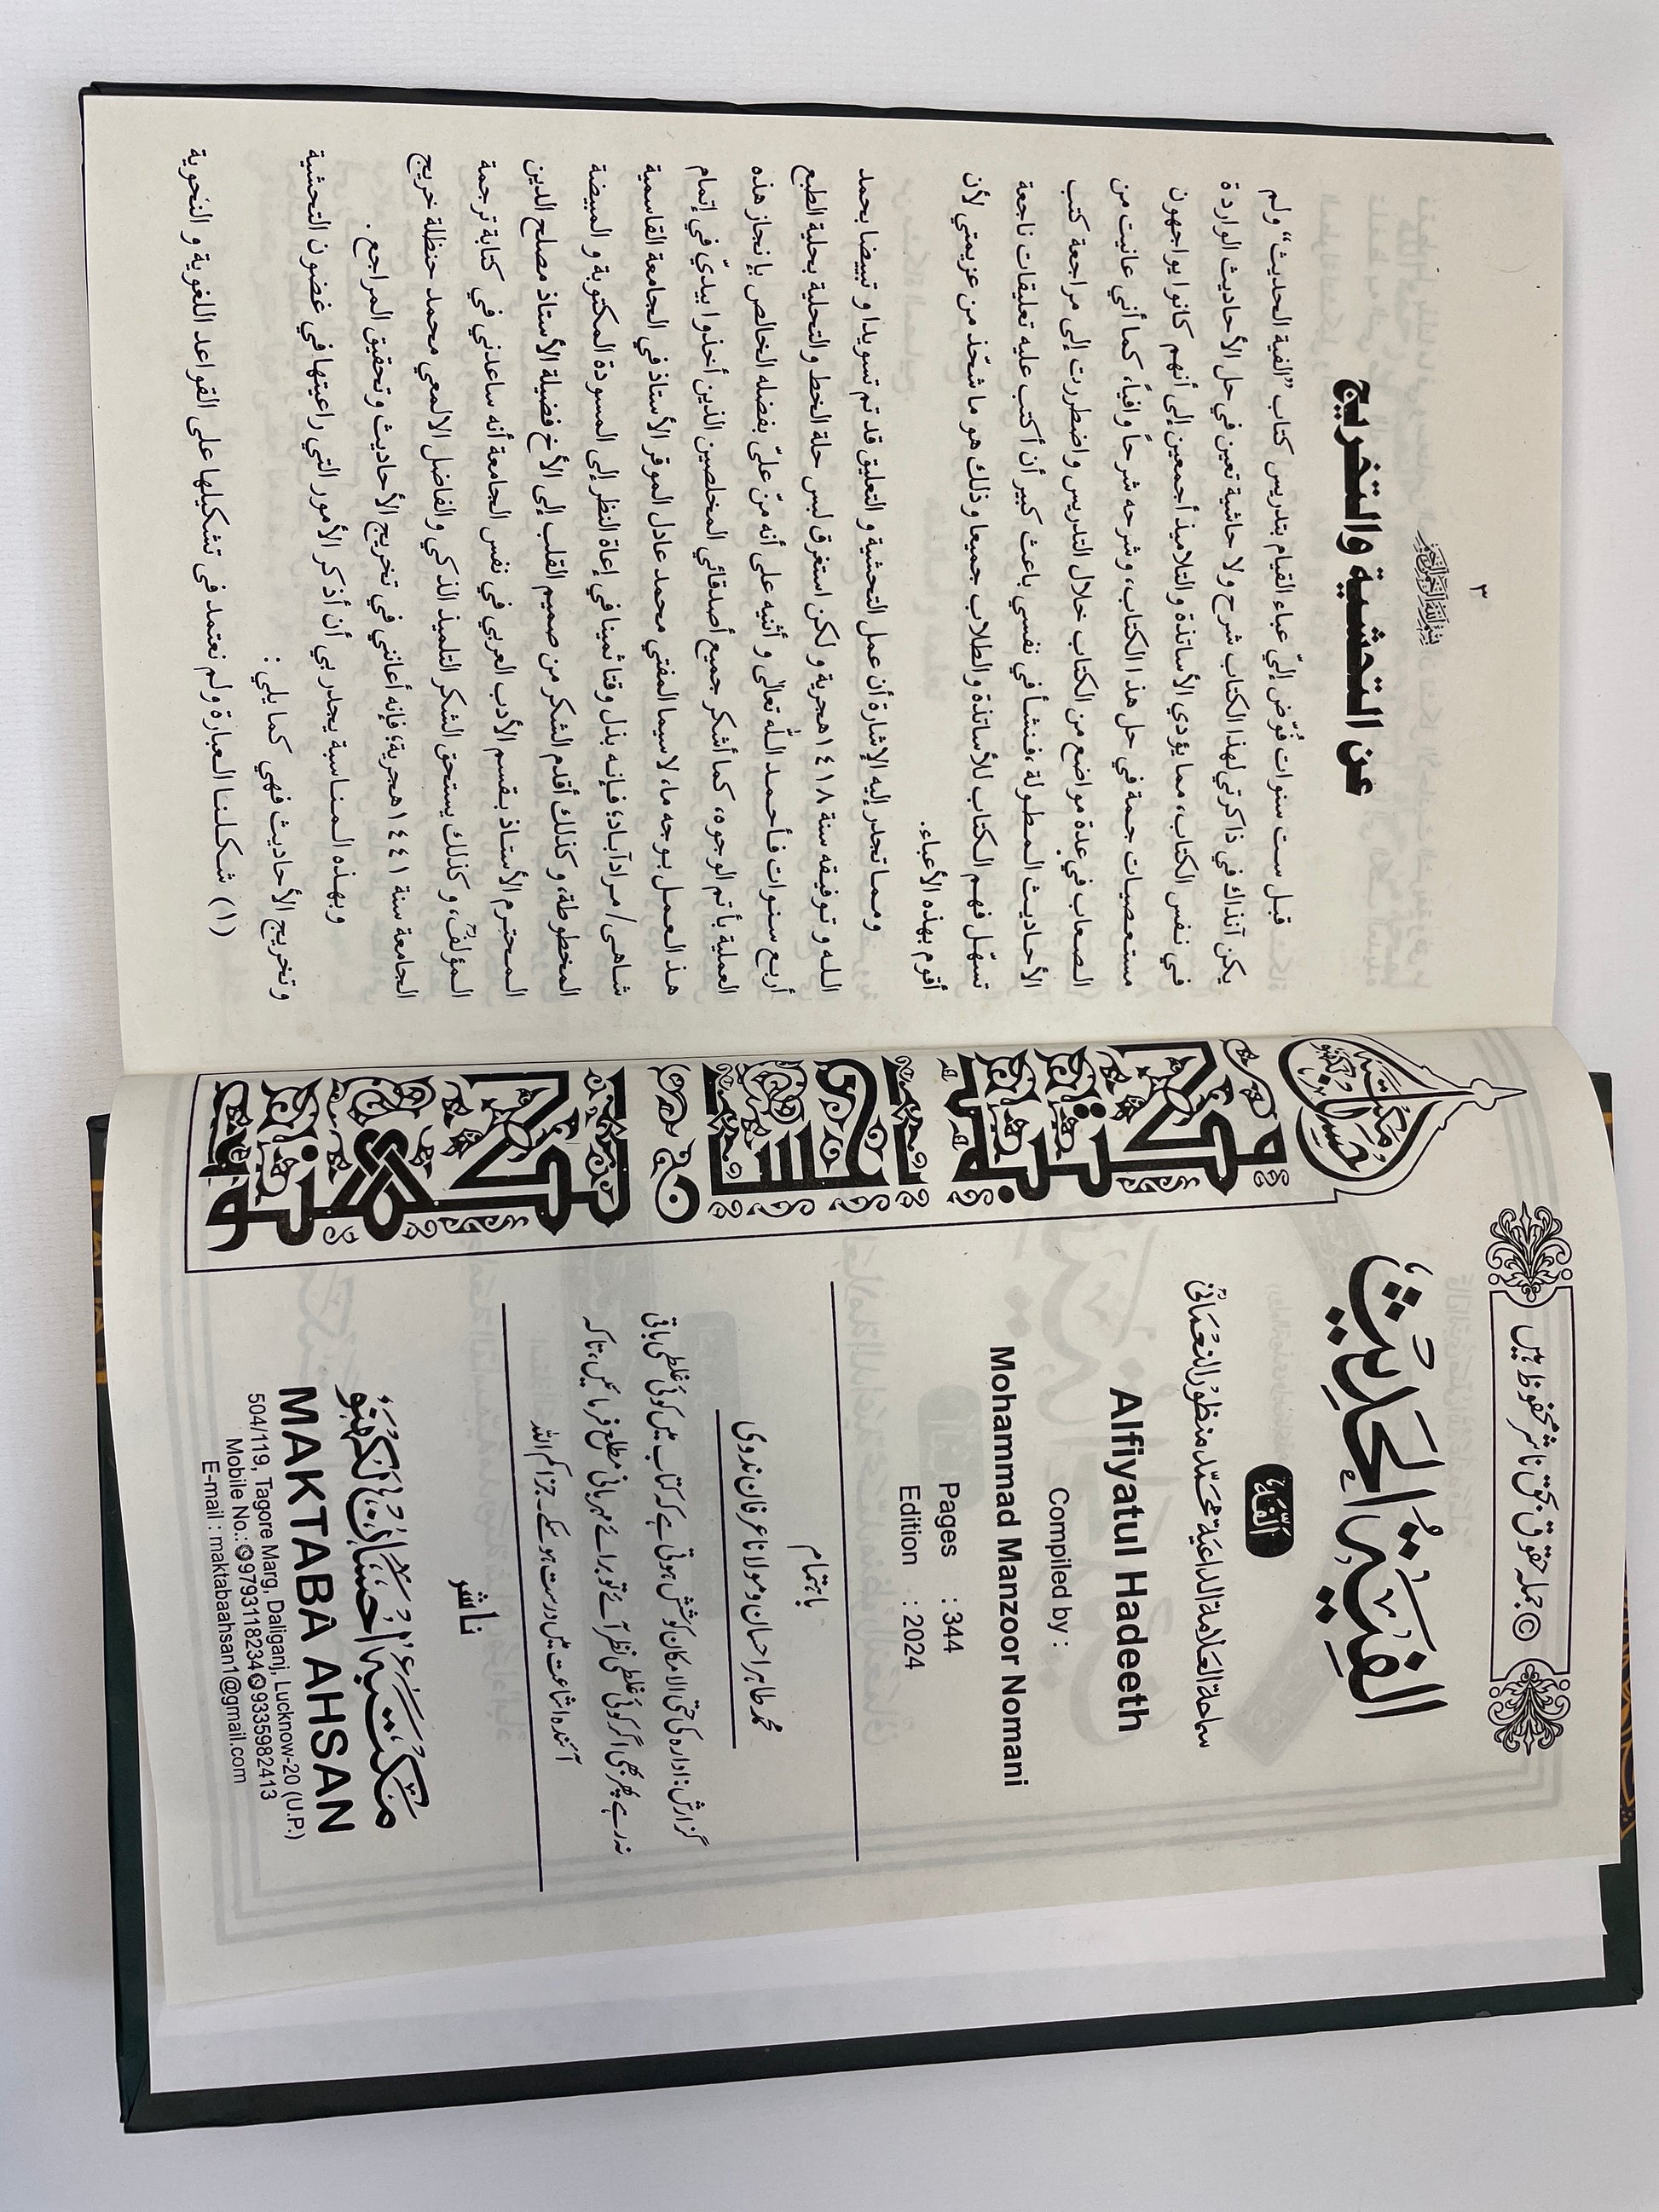 © جملہ حقوق بحق ناشر محفوظ ہیں
الفِيَّةُ الحَدِيْث
ألفية
سماحة العلامة الداعية محمّد منظور النعماني
Alfiyatul Hadeeth
Compiled by :
Mohammad Manzoor Nomani
Pages : 344
Edition : 2024
باہتمام
محمد طاہر احسان و مولانا عرفان ندوی
گزارش: ادارہ کی حتی الامکان کوشش ہوتی ہے کہ کتاب میں کوئی غلطی باقی
نہ رہے پھر بھی اگر کوئی غلطی نظر آئے تو برائے مہربانی مطلع فرمائیں، تاکہ
آئندہ اشاعت میں درست ہو سکے۔ جزاکم اللہ
ناشر
مكتبه احسان لكهنو
MAKTABA AHSAN
504/119, Tagore Marg, Daliganj, Lucknow-20 (U.P.)
Mobile No.: 9793118234 9335982413
E-mail : maktabaahsan1@gmail.com
مکتبہ احسان لکھنؤ
مکتبہ احسان لکھنو
٣
بسم الله الرحمن الرحيم
عن التحشية والتخريج
قبل ست سنوات فُوِّض إليّ عباء القيام بتدريس كتاب ”الفية الحديث“ ولم
يكن آنذاك في ذاكرتي لهذا الكتاب شرح ولا حاشية تعين في حل الأحاديث الواردة
في نفس الكتاب، مما يؤدي الأساتذة والتلاميذ أجمعين إلى أنهم كانوا يواجهون
مستعصيات جمة في حل هذا الكتاب، وشرحه شرحاً وافياً، كما أني عانيت من
الصعاب في عدة مواضع من الكتاب خلال التدريس واضطررت إلى مراجعة كتب
الأحاديث المطولة، فنشأ في نفسي باعث كبير أن أكتب عليه تعليقات ناجعة
تسهّل فهم الكتاب للأساتذة والطلاب جميعا وذلك هو ما شحّذ من عزيمتي لأن
أقوم بهذه الأعباء.
ومما تجدر إليه الإشارة أن عمل التحشية والتعليق قد تم تسويدا و تبييضا بحمد
الله و توفيقه سنة ١٤١٨ هجرية و لكن استغرق لبس حلة الخط والتحلية بحلية الطبع
أربع سنوات فأحمد الله تعالى و أثنيه على أنه منّ عليّ بفضله الخالص بإنجاز هذه
العملية بأتم الوجوه، كما أشكر جميع أصدقائي المخلصين الذين أخذوا بيديّ في إتمام
هذا العمل بوجه ما، لاسيما المفتي محمد عادل الموقر الأستاذ في الجامعة القاسمية
شاهى/ مرادآباد؛ فإنه بذل وقتا ثمينا في إعاة النظر إلى المسودة المكتوبة و المبيضة
المخطوطة، و كذلك أقدم الشكر من صميم القلب إلى الأخ فضيلة الأستاذ مصلح الدين
المحترم الأستاذ بقسم الأدب العربي في نفس الجامعة أنه ساعدني في كتابة ترجمة
المؤلف، و كذلك يستحق الشكر التلميذ الذكي والفاضل الالمعي محمد حنظلة خريج
الجامعة سنة ١٤٤١ هجرية؛ فإنه أعانني في تخريج الأحاديث و تحقيق المراجع .
وبهذه المناسبة يجدر بي أن أذكر الأمور التي راعيتها في غضون التحشية
وتخريج الأحاديث فهي كما يلي :
(١) شكلنا العبارة ولم نعتمد في تشكيلها على القواعد اللغوية و النحوية